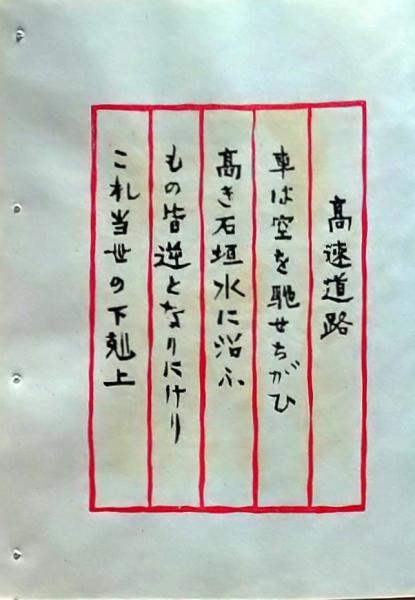 高速道路
車は空を馳せちがひ
高き石垣水に沿ふ
もの皆逆となりにけり
これ当世の下剋上